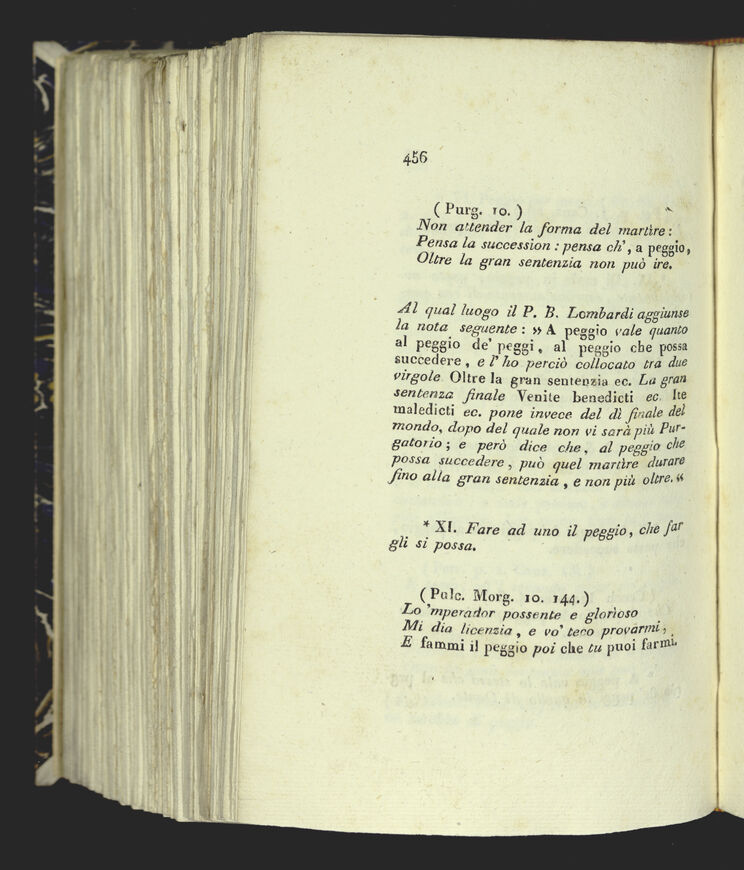 456
( Purg. 10. )
Non attender la forma del martìre :
Pensa la succession : pensa ch', a peggio,
Oltre la gran sentenzia non può ire.
Al qual luogo il P. B. Lombardi aggiunse
la nota seguente : » A peggio vale quanto
al peggio de' peggi, al peggio che possa
succedere, e l'ho perciò collocato tra due
virgole Oltre la gran sentenzia ec. La gran
sentenza finale Venite benedicti ec. Ite
maledicti ec. pone invece del dì finale del
mondo, dopo del quale non vi sarà più Pur-
gatorio ; e però dice che, al peggio che
possa succedere, può quel martìre durare
fino alla gran sentenzia, e non più oltre. «
* XI. Fare ad uno il peggio, che far
gli si possa.
( Pulc. Morg. 10. 144. )
Lo 'mperador possente e glorìoso
Mi dia licenzia, e vo' teco provarmi,
E fammi il peggio poi che tu puoi farmi.